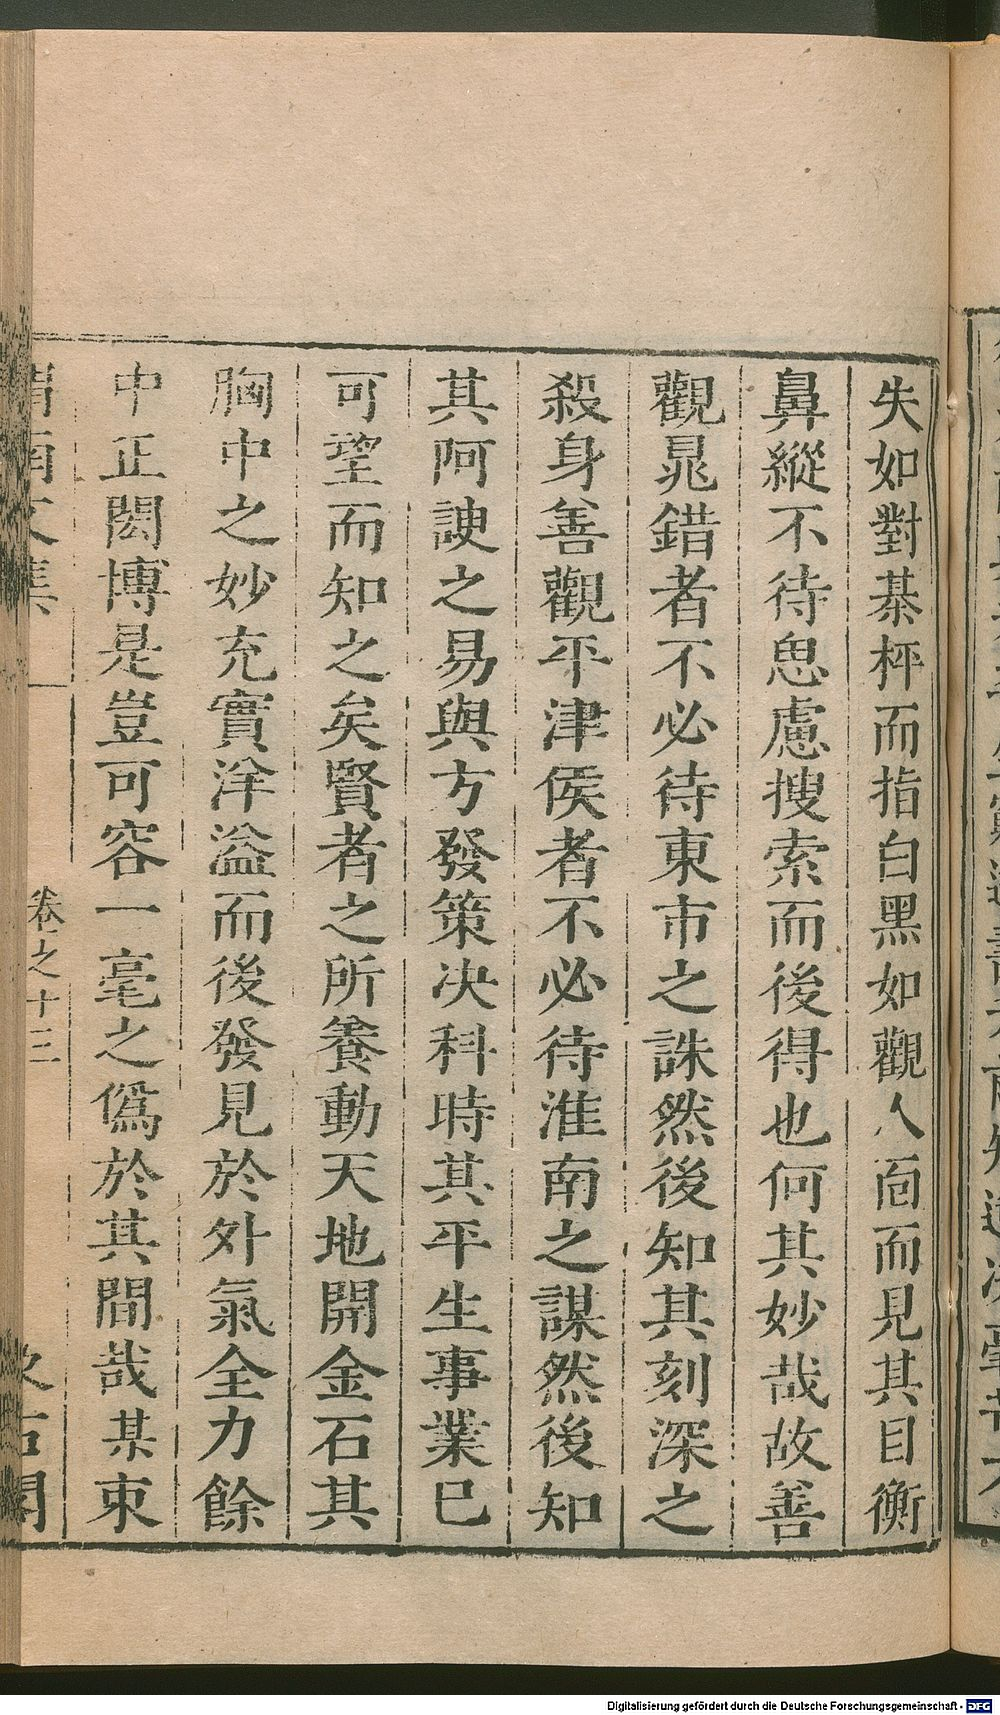 失如對棊枰而指白黒如觀人面而見其目衡
鼻縱不待思慮搜索而後得也何其妙哉故善
觀晁錯者不必待東市之誅然後知其刻深之
殺身善觀平津侯者不必待淮南之謀然後知
其阿諛之易與方發策决科時其平生事業已
可望而知之矣賢者之所養動天地開金石其
胸中之妙充實洋溢而後發見於外氣全力餘
中正閎博是豈可容一毫之僞於其間哉某束
渭南文集 卷之十三 汲古閣
Digitalisierung gefördert durch die Deutsche Forschungsgemeinschaft - DFG